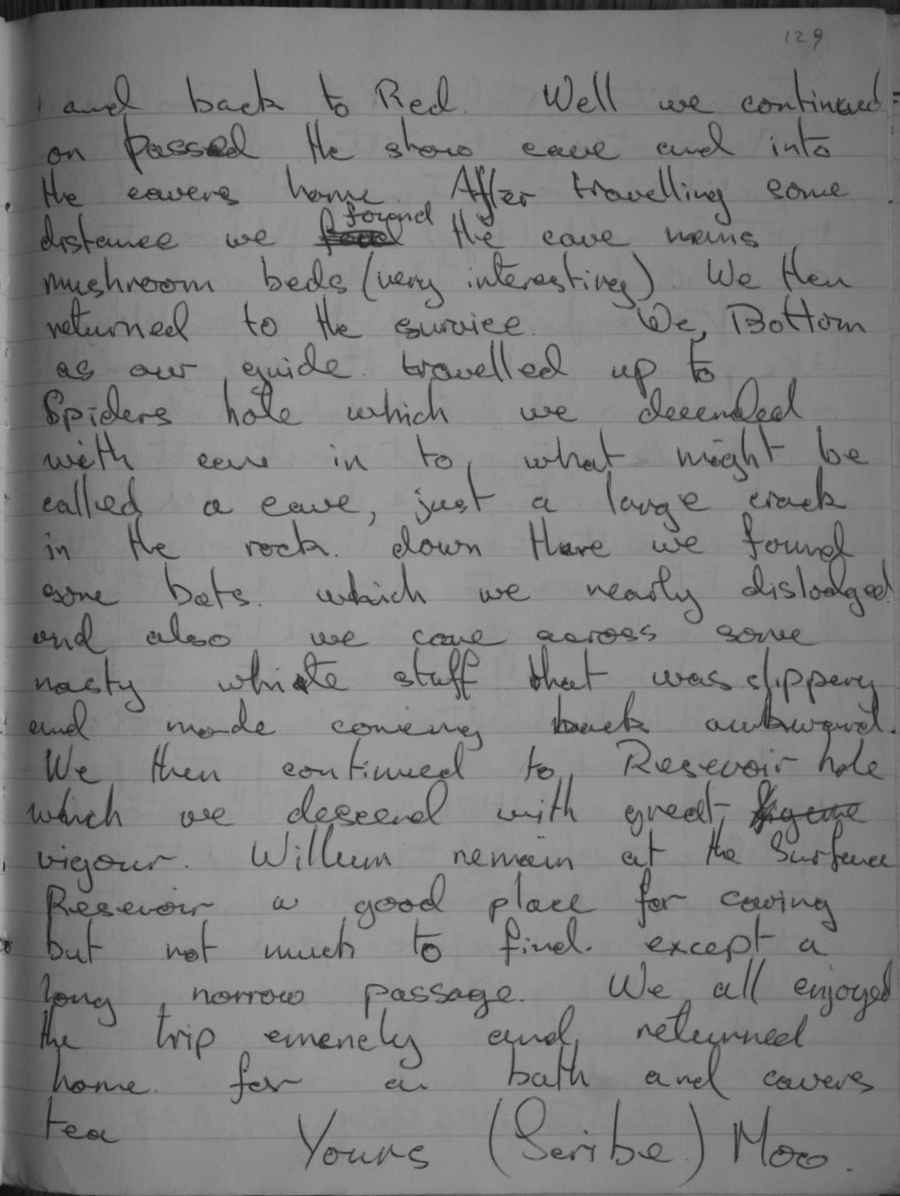 129
and back to Red. Well we continued
on passed the show cave and into
the cavers home. After travelling some
distance we found the cave mans
mushroom beds (very interesting). We then
returned to the survice. We, Bottom
as our guide. travelled up to
Spiders hole which we decended
with care in to, what might be
called a cave, just a large crack
in the rock. down there we found
some bats. which we nearly dislodged
and also we came across some
nasty white stuff that was slippery
and made coming back awkward.
We then continued to Resevoir hole
which we descend with great,
vigour. Willum remain at the Surface
Resevoir a good place for caving
but not much to find. except a
long, norrow passage. We all enjoyed
the trip emencly and, returned
home. for a bath and cavers
tea
Yours (Scribe) Moo.